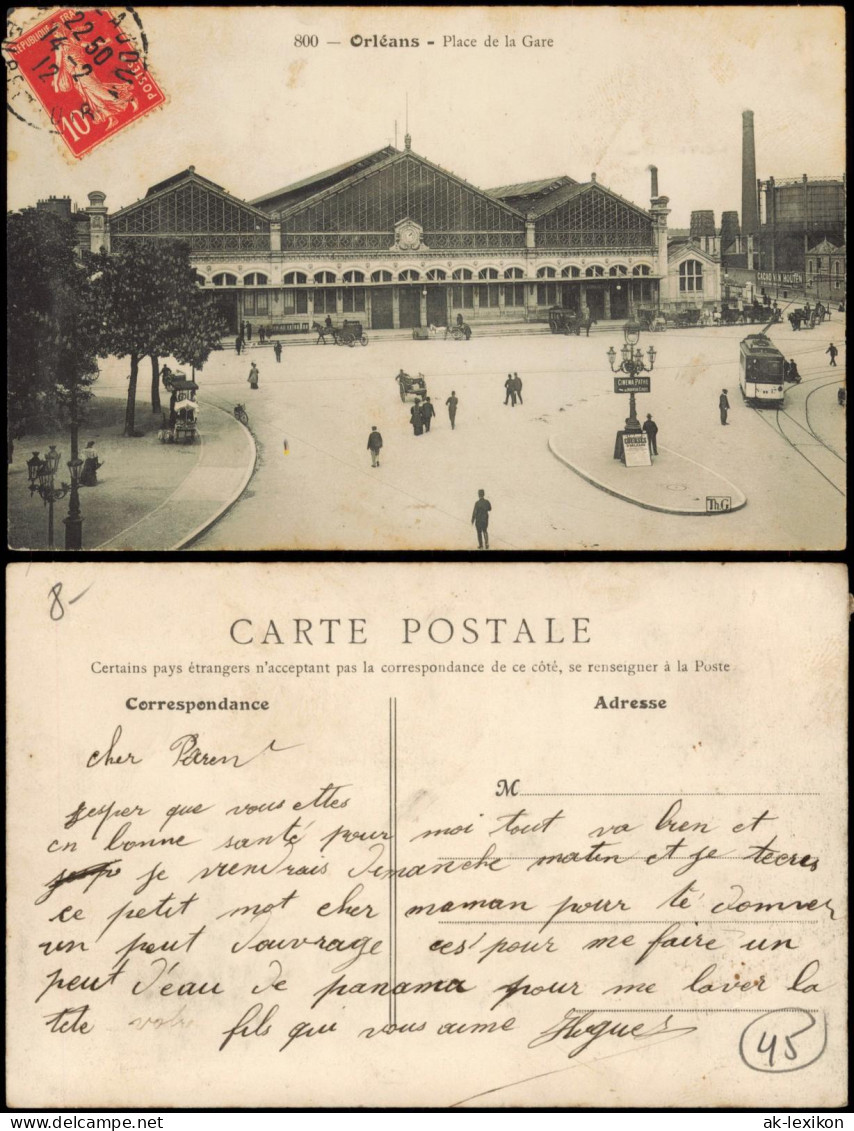 800 — Orléans - Place de la Gare
REPUBLIQUE FRANÇAISE
10
POSTES
22 50
14-2
12
CACAO VAN HOUTEN
CINEMA PATHÉ
ThG
8-
CARTE POSTALE
Certains pays étrangers n'acceptent pas la correspondance de ce côté, se renseigner à la Poste
Correspondance
Adresse
M
cher Paren
jesper que vous ettes
en bonne santé pour moi tout va bien et
je viendrais dimanche matin et je tecres
ce petit mot cher maman pour te donner
un peut douvrage ces pour me faire un
peut d'eau de panama pour me laver la
tete votre fils qui vous aime Hugues
45
ak-ansichtskarten.de
ak-lexikon